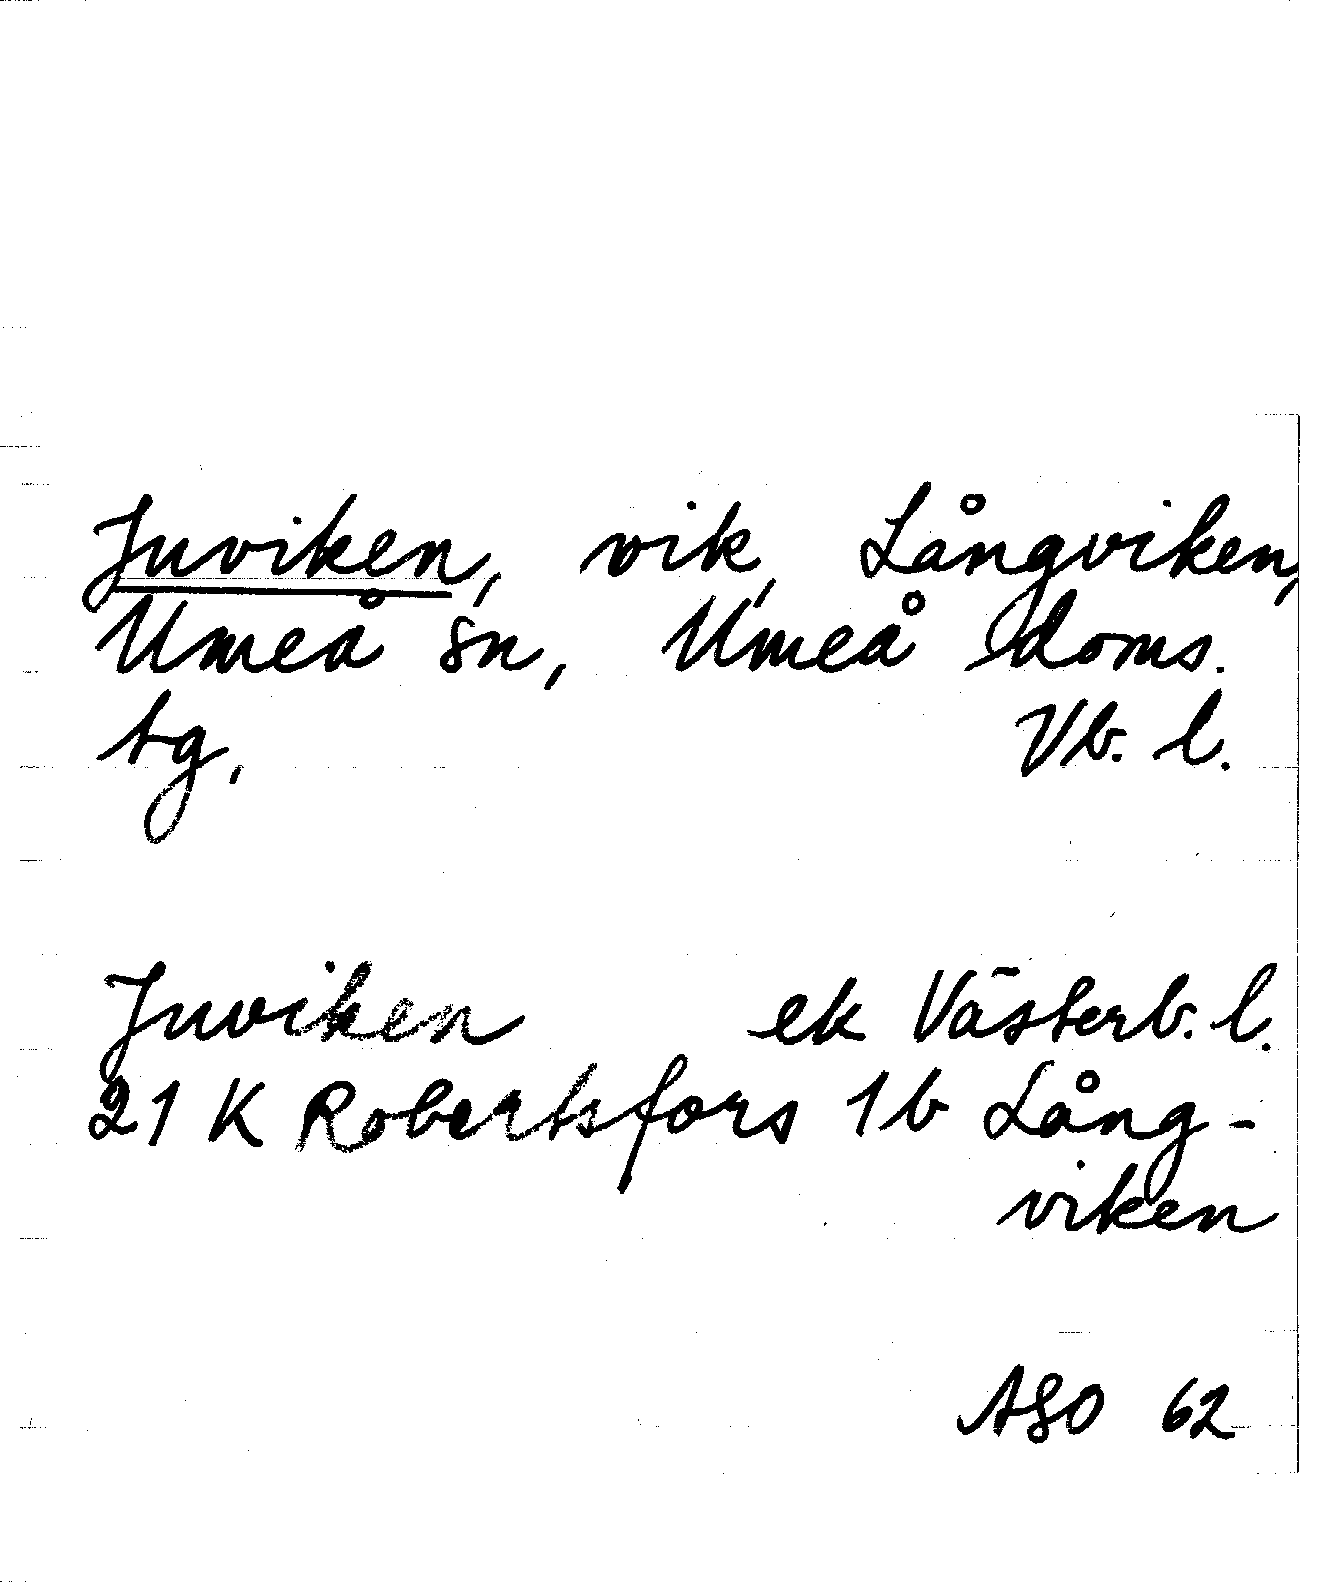 Juviken, vik, Långviken,
Umeå sn, Umeå doms.
tg, Vb. l.
Juviken ek Västerb. l.
21 K Robertsfors 1b Lång-
viken
ASO 62